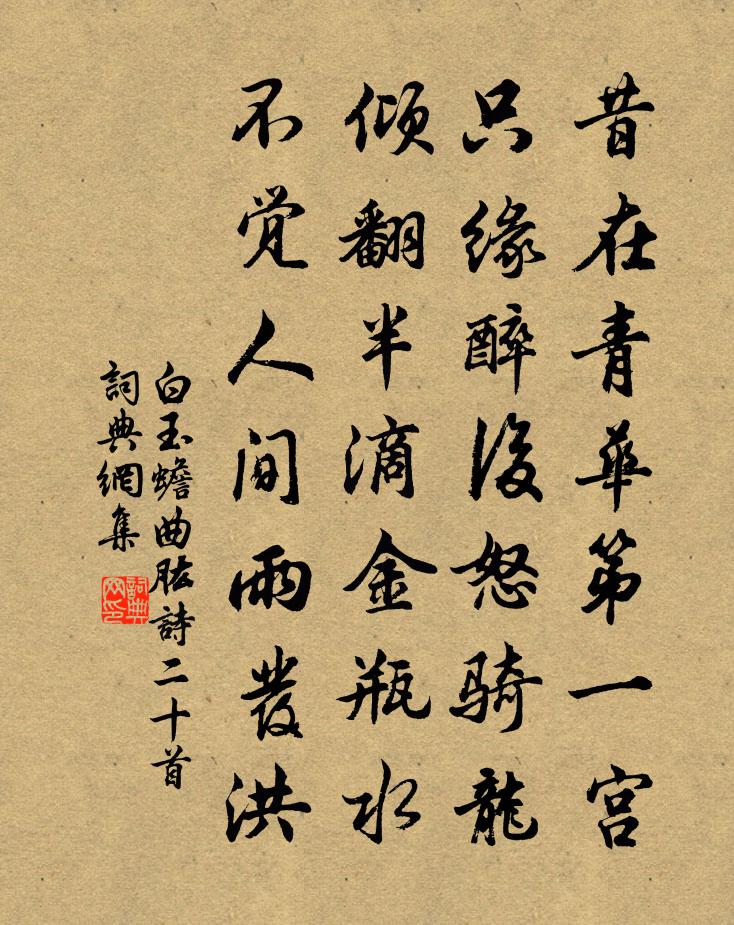 昔在青華第一宮
只緣醉後怒騎龍
傾翻半滴金瓶水
不覺人間雨發洪
白玉蟾曲肱詩二十首
詞典網集
詞典网印